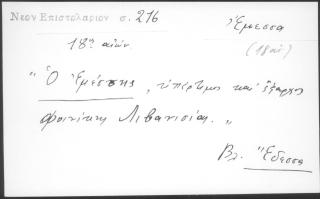 Νεον Επιστολαριον σ. 216
Ἔμεσσα
18ος αἰών
(18 αἰ)
"Ὁ Ἐμέσσης, ὑπέρτιμος καὶ ἔξαρχος
Φοινίκης Λιβανισίας."
Βλ. Ἔδεσσα